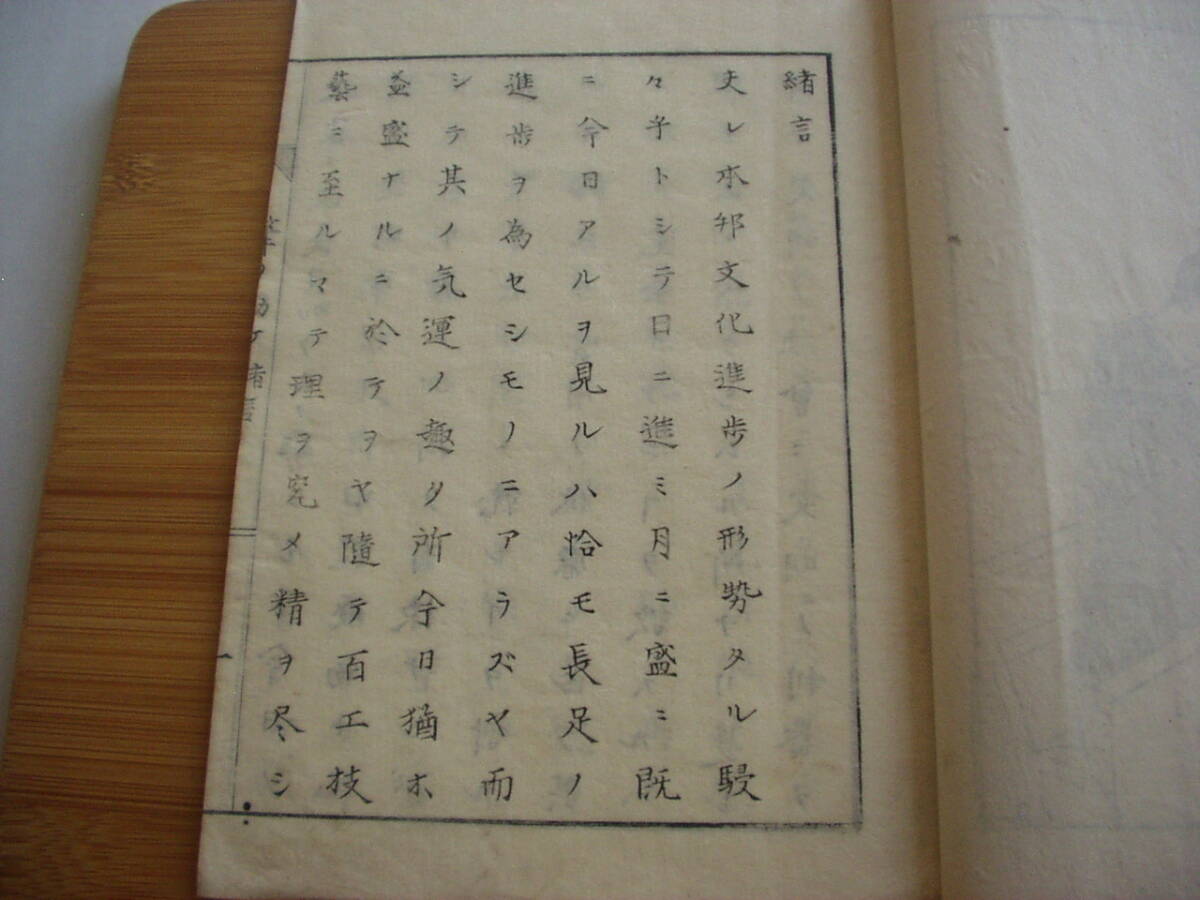 緒言
夫レ本邦文化進歩ノ形勢タル駸
々乎トシテ日ニ進ミ月ニ盛ニ既
ニ今日アルヲ見ルハ恰モ長足ノ
進歩ヲ為セシモノニアラズヤ而
シテ其ノ気運ノ趣タ所今日猶ホ
益盛ナルニ於テヲヤ随テ百工技
藝ニ至ルマテ理ヲ究メ精ヲ尽シ
緒言
一